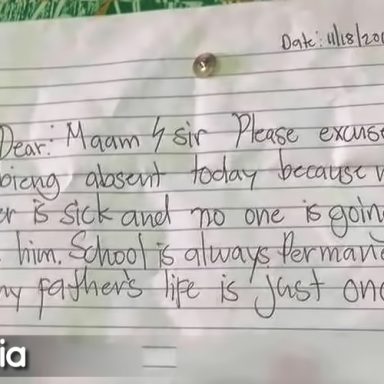 Date: 11/18/20
Dear: Maam & sir Please excuse
bieng absent today because
er is sick and no one is goin
him. School is always Permane
my father's life is just one
ia